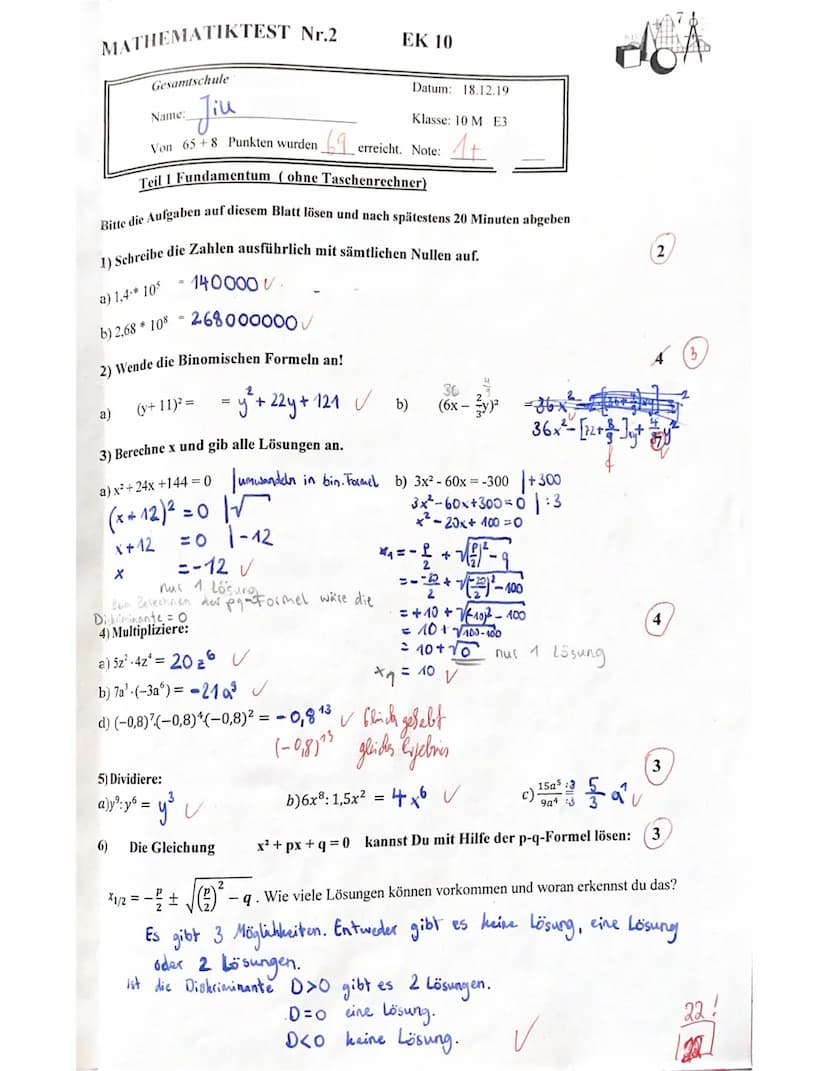 MATHEMATIKTEST Nr.2 EK 10
Gesamtschule
Datum: 18.12.19
Name: Jiu
Klasse: 10 M E3
Von 65 + 8 Punkten wurden 69 erreicht. Note: 1+
Teil 1 Fundamentum ( ohne Taschenrechner)
Bitte die Aufgaben auf diesem Blatt lösen und nach spätestens 20 Minuten abgeben
1) Schreibe die Zahlen ausführlich mit sämtlichen Nullen auf. 2
a) 1,4 * 10⁵ = 140000 ✓
b) 2,68 * 10⁸ = 268000000 ✓
2) Wende die Binomischen Formeln an! 4 3
a) (y+ 11)² = = y² + 22y + 121 ✓ b) (6x – 2/3y)² = 36x²
36x² - [72 + 8/9]xy +
3) Berechne x und gib alle Lösungen an.
a) x² + 24x +144 = 0 | umwandeln in bin. Formel b) 3x² - 60x = -300 | +300
(x + 12)² = 0 | √ 3x² - 60x + 300 = 0 | : 3
x + 12 = 0 | -12 x² - 20x + 100 = 0
x = -12 ✓ x₁ = - p/2 + √((p/2)² - q)
nur 1 Lösung = - -20/2 + √((-20/2)² - 100)
zum Berechnen der pq-Formel wäre die = +10 + √((-10)² - 100)
Diskriminante = 0 = 10 + √(100-100)
= 10 + √0 nur 1 Lösung
x₁ = 10 ✓
4) Multipliziere: 4
a) 5z² · 4z⁴ = 20z⁶ ✓
b) 7a³ · (−3a⁶) = -21a⁹ ✓
d) (−0,8)⁷·(−0,8)⁴·(−0,8)² = -0,8¹³ ✓
(-0,8)¹³ gleiches Ergebnis
5) Dividiere: 3
a) y⁹ : y⁶ = y³ ✓ b) 6x⁸ : 1,5x² = 4x⁶ ✓ c) 15a⁵/9a⁴ :3/:3 = 5/3 a¹ ✓
6) Die Gleichung x² + px + q = 0 kannst Du mit Hilfe der p-q-Formel lösen: 3
x₁/₂ = − p/2 ± √((p/2)² − q) . Wie viele Lösungen können vorkommen und woran erkennst du das?
Es gibt 3 Möglichkeiten. Entweder gibt es keine Lösung, eine Lösung
oder 2 Lösungen.
ist die Diskriminante D>0 gibt es 2 Lösungen.
D=0 eine Lösung.
D<0 keine Lösung. ✓
22!
22